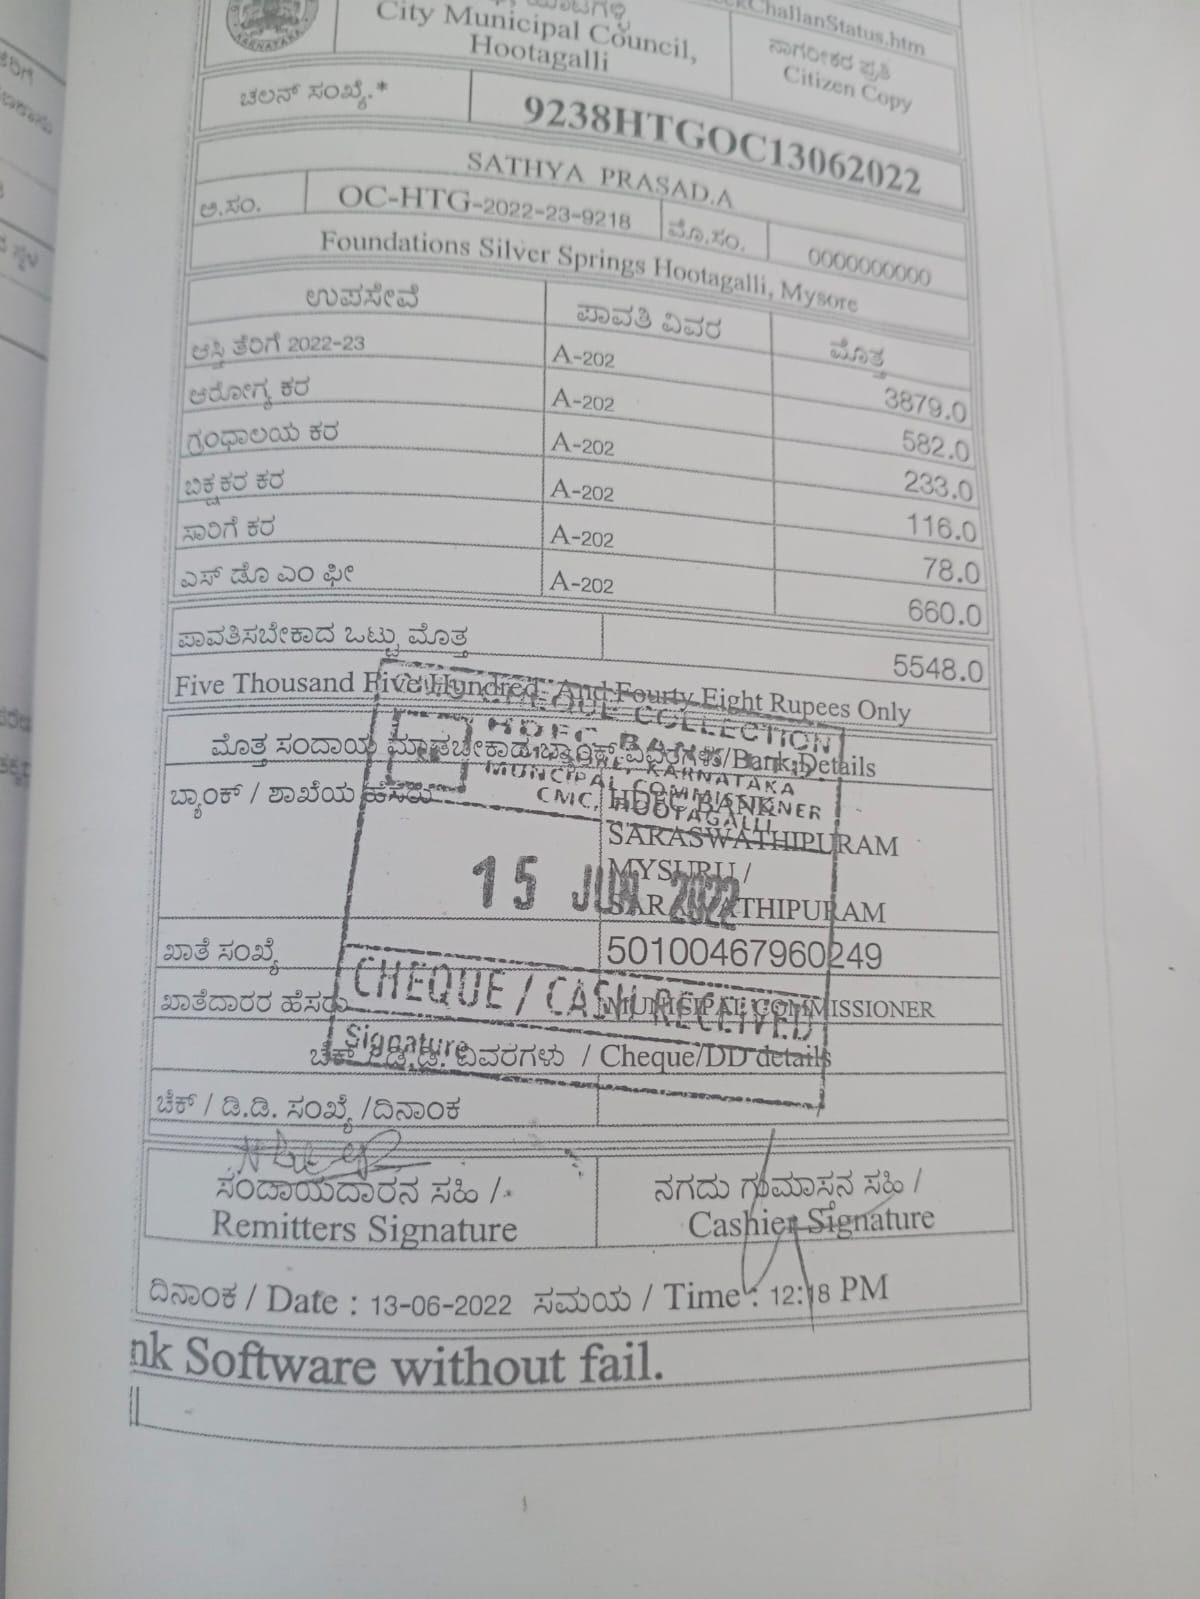 ckChallanStatus.htm
City Municipal Council,
Hootagalli
ನಾಗರೀಕರ ಪ್ರತಿ
Citizen Copy
KARNATAKA
ಚಲನ್ ಸಂಖ್ಯೆ.*
9238HTGOC13062022
SATHYA PRASAD.A
ಅ.ಸಂ.
OC-HTG-2022-23-9218
ಮೊ.ಸಂ.
0000000000
Foundations Silver Springs Hootagalli, Mysore
ಉಪಸೇವೆ ಪಾವತಿ ವಿವರ ಮೊತ್ತ
ಆಸ್ತಿ ತೆರಿಗೆ 2022-23 A-202 3879.0
ಆರೋಗ್ಯ ಕರ A-202 582.0
ಗ್ರಂಥಾಲಯ ಕರ A-202 233.0
ಬಿಕ್ಷಕರ ಕರ A-202 116.0
ಸಾರಿಗೆ ಕರ A-202 78.0
ಎಸ್ ಡೊ ಎಂ ಫೀ A-202 660.0
ಪಾವತಿಸಬೇಕಾದ ಒಟ್ಟು ಮೊತ್ತ 5548.0
Five Thousand Five Hundred And Fourty Eight Rupees Only
CHEQUE COLLECTION
HDFC BANK
KARNATAKA
MUNCIPAL COMMISSIONER
CMC, HOOTAGALLI
ಮೊತ್ತ ಸಂದಾಯ ಮಾಡಬೇಕಾದ ಬ್ಯಾಂಕ್ ವಿವರಗಳು/Bank Details
ಬ್ಯಾಂಕ್ / ಶಾಖೆಯ ಹೆಸರು
HDFC BANK
SARASWATHIPURAM
MYSURU /
SARASWATHIPURAM
15 JUN 2022
ಖಾತೆ ಸಂಖ್ಯೆ 50100467960249
ಖಾತೆದಾರರ ಹೆಸರು MUNICIPAL COMMISSIONER
CHEQUE / CASH RECEIVED
Signature
ಚೆಕ್ / ಡಿ.ಡಿ. ವಿವರಗಳು / Cheque/DD details
ಚೆಕ್ / ಡಿ.ಡಿ. ಸಂಖ್ಯೆ /ದಿನಾಂಕ
ಸಂದಾಯದಾರನ ಸಹಿ /
Remitters Signature
ನಗದು ಗುಮಾಸ್ತನ ಸಹಿ /
Cashier Signature
ದಿನಾಂಕ / Date : 13-06-2022 ಸಮಯ / Time : 12:18 PM
nk Software without fail.